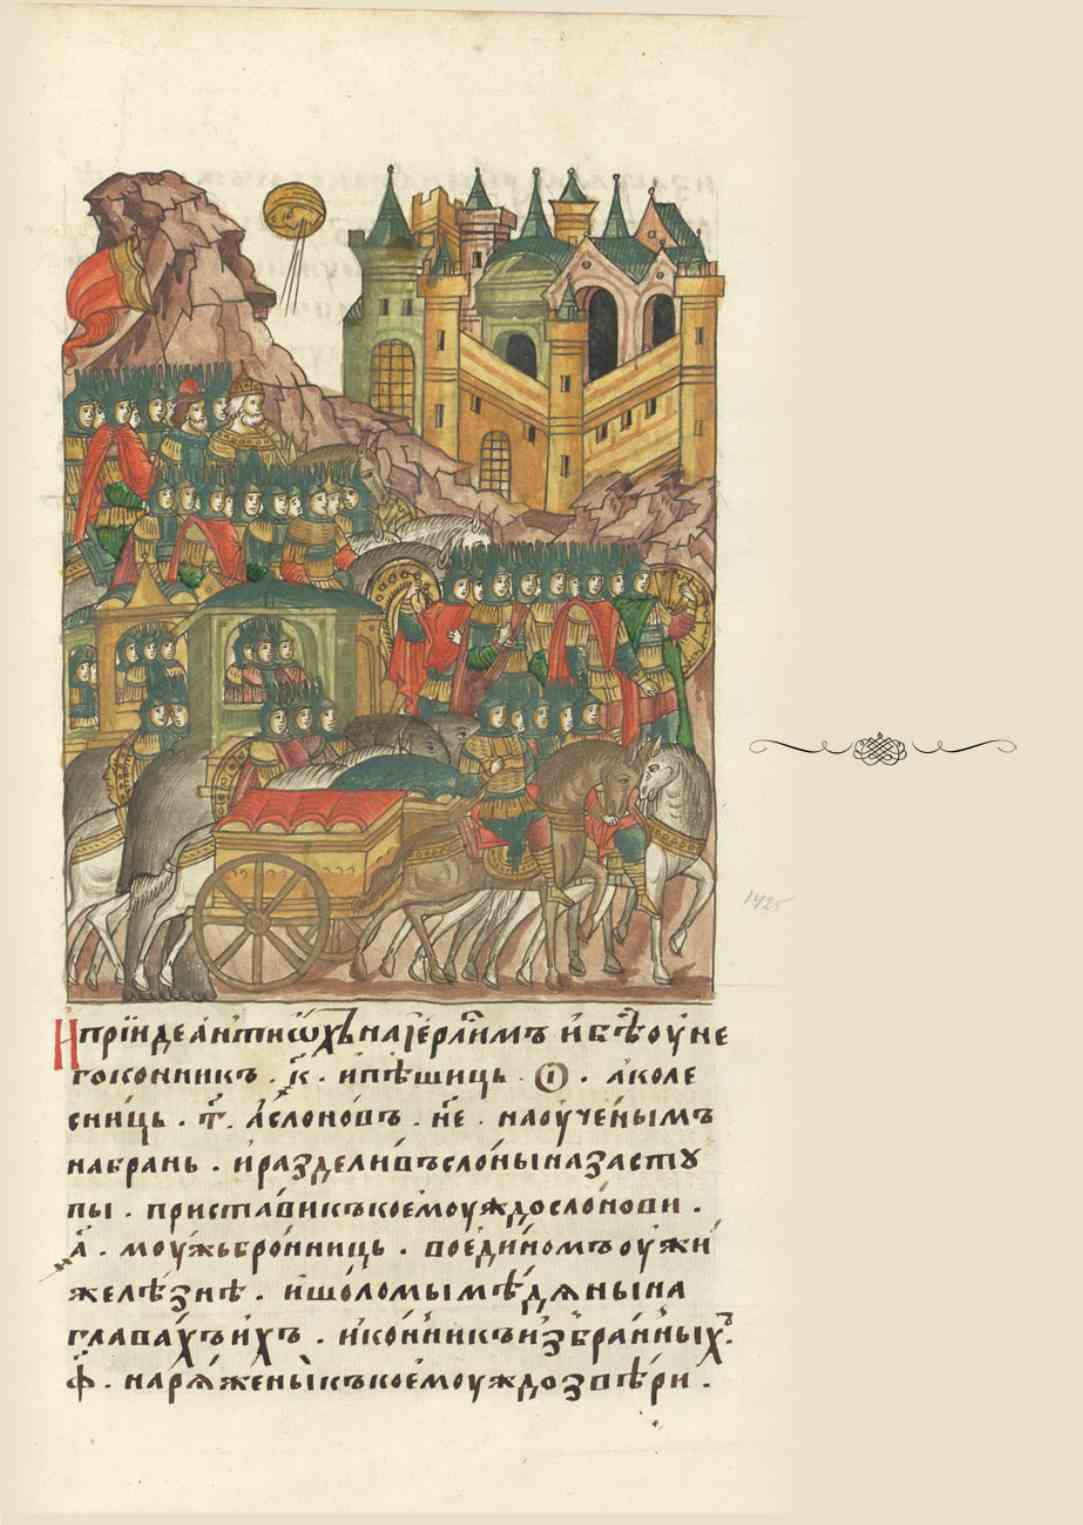 И прїиде антиѡхъ на іерⷭ҇лимъ и бѣ оу не
го конникъ . к҃ . и пѣшиць . ꙇ . а коле
сниць . т҃ . а слоновъ . н҃е . наоученымъ
на брань . и разделивъ слоны на засту
пы . приставикъ коемоуждо слонови .
҂а҃ . моужь бронниць . во единомъ оужи
желѣзнѣ . и шоломы мѣдяны на
главахъ ихъ . и конникъ избранныхъ .
ф҃ . наряжены къ коемоуждо звѣри .
1425